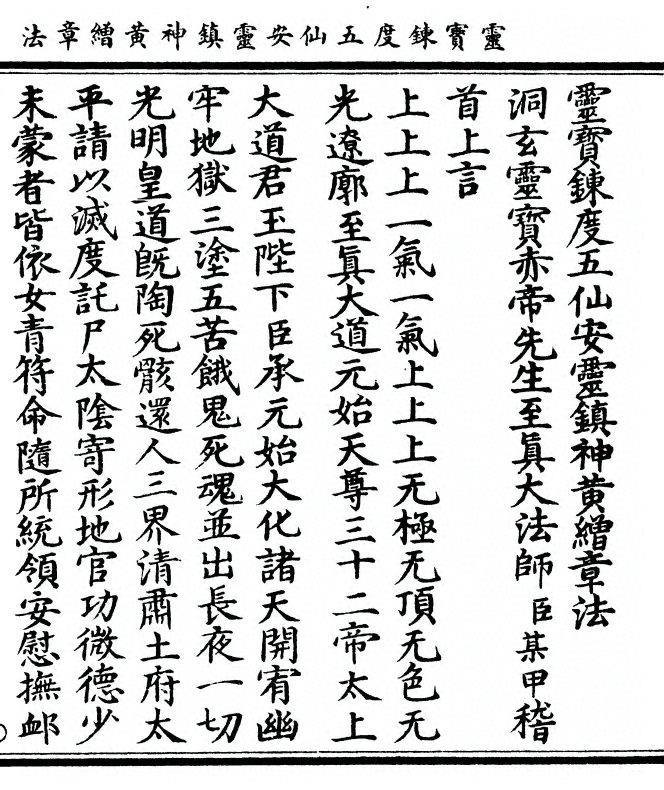 靈寳鍊度五仙安靈鎮神黄繒章法
靈寳鍊度五仙安靈鎮神黄繒章法
洞玄靈寳赤帝先生至眞大法師臣某甲稽
首上言
上上上一氣一氣上上上无極无頂无色无
光遼廓至眞大道元始天尊三十二帝太上
大道君玉陛下臣承元始大化諸天開宥幽
牢地獄三塗五苦餓鬼死魂並出長夜一切
光明皇道旣陶死骸還人三界清肅土府太
平請以滅度託尸太陰寄形地官功微德少
未蒙者皆依女青符命隨所統領安慰撫䘏